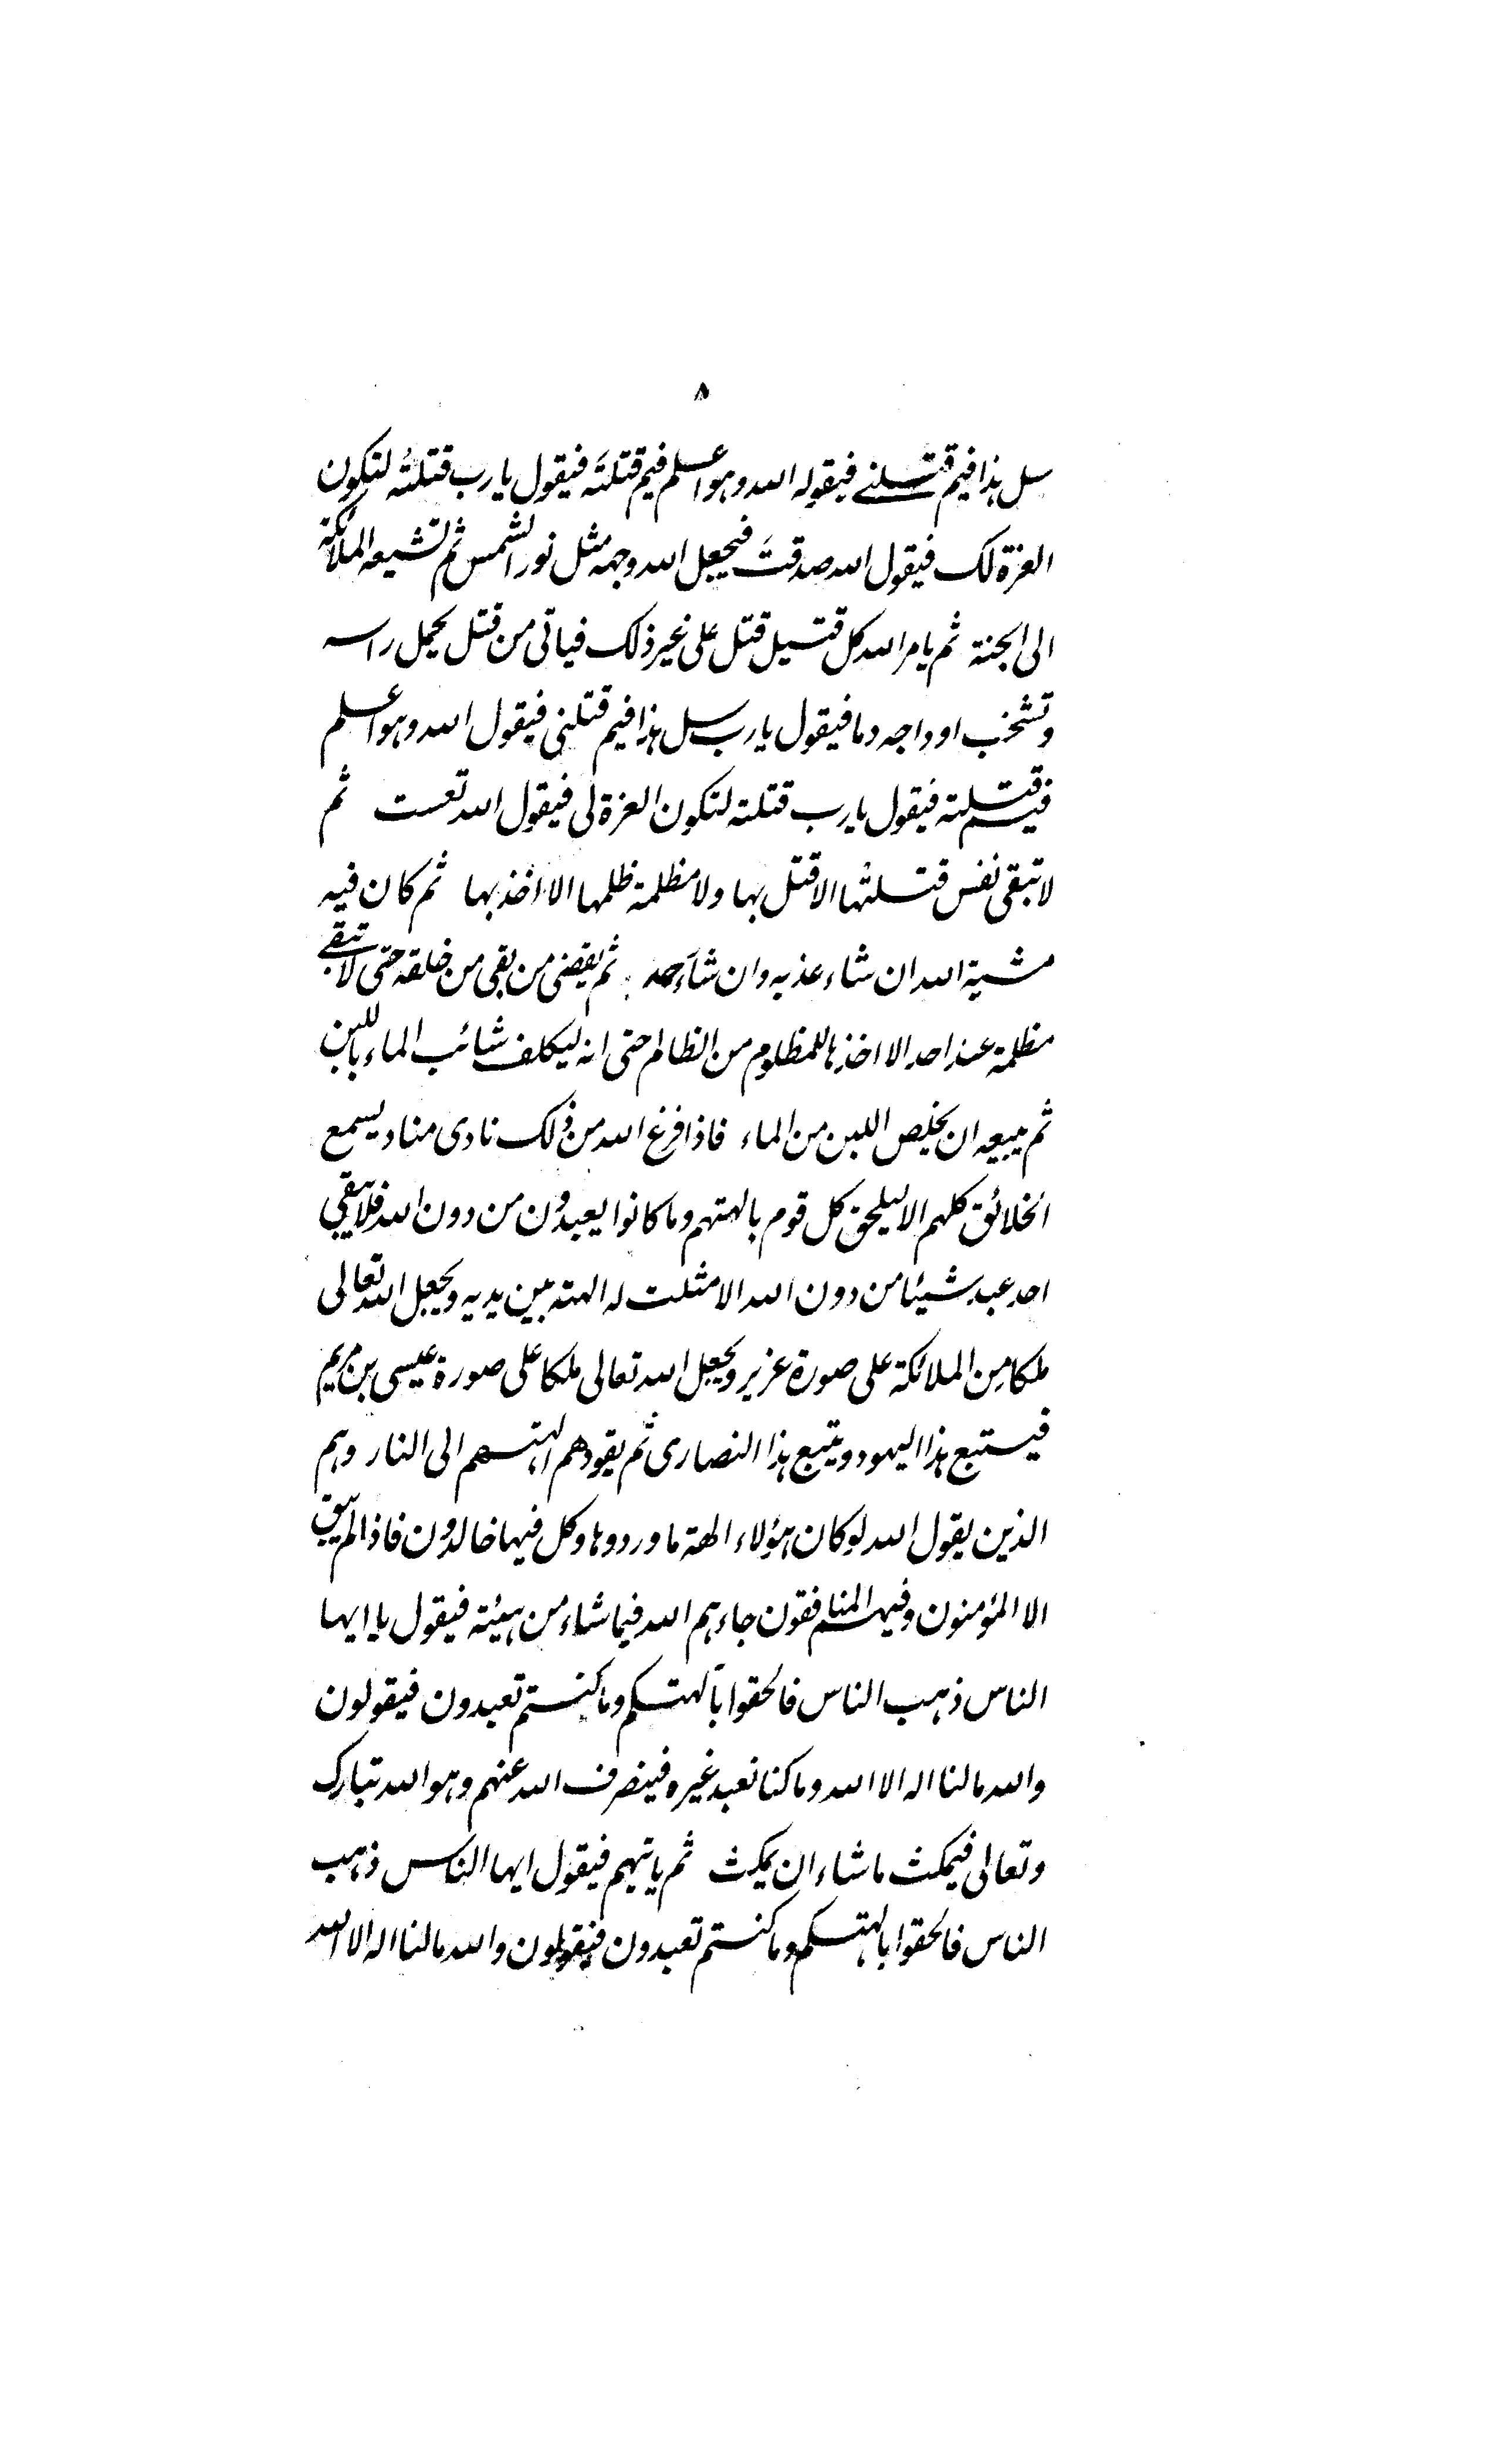 ٨
سل هذا فيم قتلني فيقوله الله وهو اعلم فيم قتلتَه فيقول يا رب قتلتُه لتكون
العزة لك فيقول الله صدقتَ فيجعل الله وجهه مثل نور الشمس ثم تشيعه الملائكة
الى الجنة ثم يامر الله كل قتيل قتل على غير ذلك فياتى من قتل يحمل راسه
وتشخب اوداجه دما فيقول يا رب سل هذا فيم قتلنى فيقول الله وهو اعلم
فيم قتلته فيقول يا رب قتلته لتكون العزة لى فيقول الله تعست ثم
لا تبقى نفس قتلتها الا قتل بها ولا مظلمة ظلمها الا اخذ بها ثم كان فيه
مشية الله ان شاء عذبه وان شآء رحمه ثم يقضى من بقى من خلقه حتى لا تبقى
مظلمة عند احد الا اخذها للمظلوم من الظالم حتى انه ليكلف شائب الماء باللبن
ثم يبيعه ان يخلص اللبن من الماء فاذا فرغ الله من ذلك نادى مناد يسمع
الخلائق كلهم الا ليلحق كل قوم بالهتهم وما كانوا يعبدون من دون الله فلا يبقى
احد عبد شيئا من دون الله الا مثلت له الهته بين يديه ويجعل الله تعالى
ملكا من الملائكة على صورة عزير ويجعل الله تعالى ملكا على صورة عيسى بن مريم
فيستبع هذا اليهود ويتبع هذا النصارى ثم يقودهم الهتهم الى النار وهم
الذين يقول الله لو كان هؤلاء الهة ما وردوها وكل فيها خالدون فاذا لم يبق
الا المؤمنون وفيهم المنافقون جاءهم الله فيما شاء من هيئة فيقول يا ايها
الناس ذهب الناس فالحقوا بآلهتكم وما كنتم تعبدون فيقولون
والله ما لنا اله الا الله وما كنا نعبد غيره فينصرف الله عنهم وهو الله تبارك
وتعالى فيمكث ما شاء ان يمكث ثم ياتيهم فيقول ايها الناس ذهب
الناس فالحقوا بالهتكم وما كنتم تعبدون فيقولون والله ما لنا اله الا الله